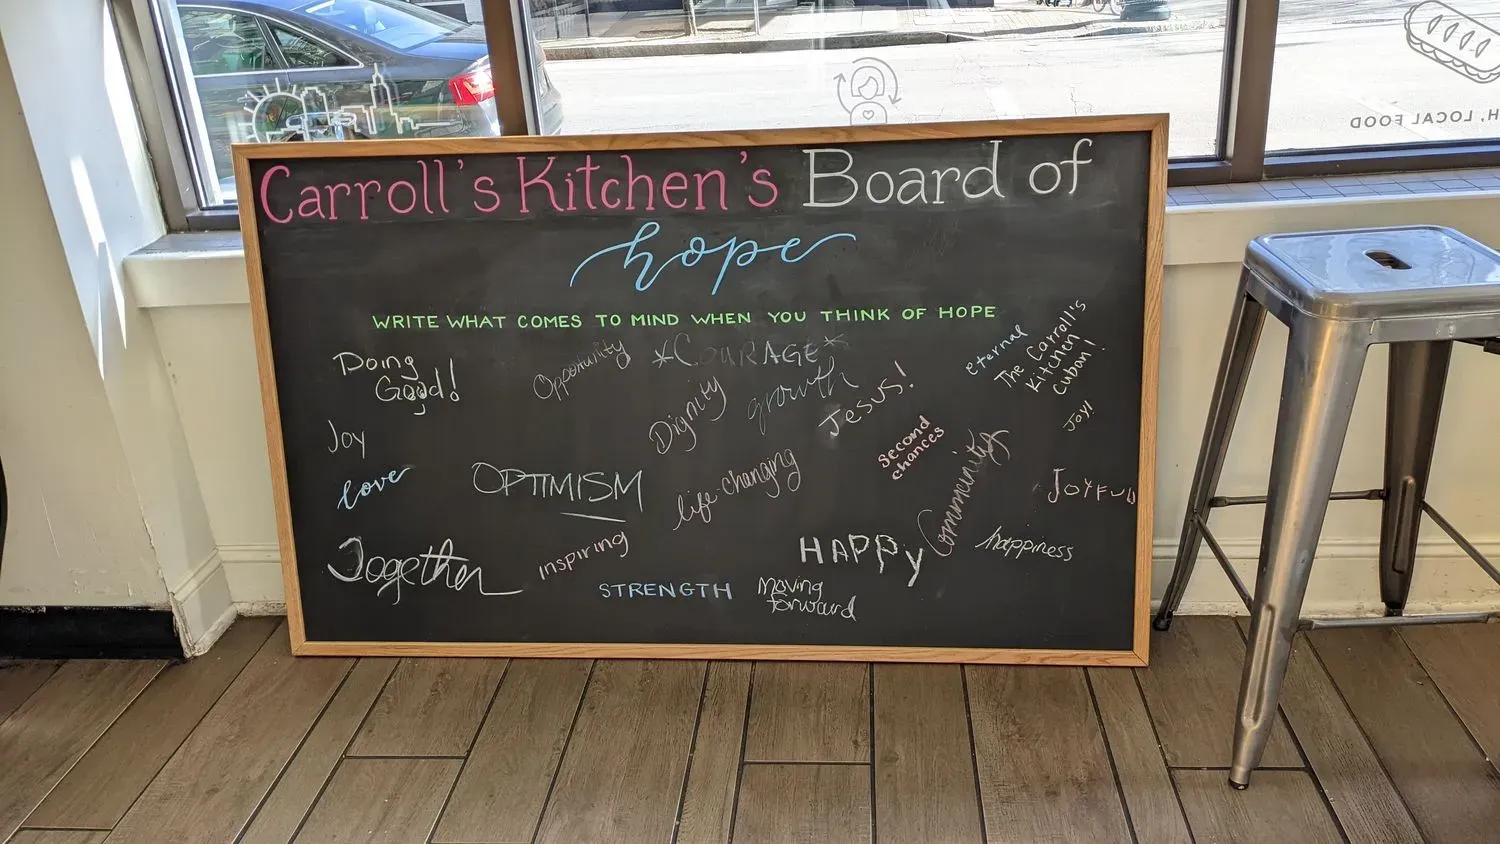 Carroll's Kitchen's Board of
hope
WRITE WHAT COMES TO MIND WHEN YOU THINK OF HOPE
Doing
Good!
Opportunity
*COURAGE*
eternal
The Carroll's
Kitchen
Cuban!
Dignity
growth
Jesus!
Joy!
Joy
Second
chances
love
OPTIMISM
life-changing
Community
JOYFUL
Together
inspiring
HAPPY
happiness
STRENGTH
Moving
forward
H, LOCAL FOOD